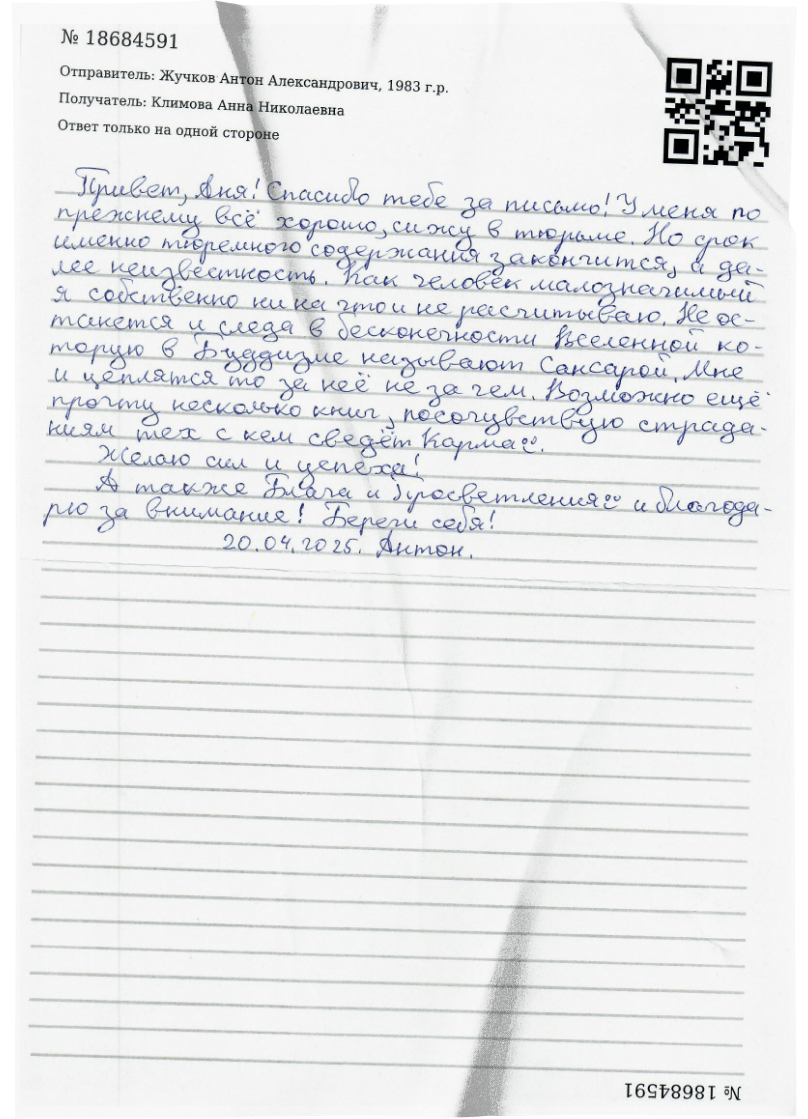 № 18684591
Отправитель: Жучков Антон Александрович, 1983 г.р.
Получатель: Климова Анна Николаевна
Ответ только на одной стороне
Привет, Аня! Спасибо тебе за письмо! У меня по
прежнему всё хорошо, сижу в тюрьме. Но срок
именно тюремного содержания закончится, а да-
лее неизвестность. Как человек малозначимый
я собственно ни на что и не расчитываю. Не ос-
танется и следа в бесконечности Вселенной ко-
торую в Буддизме называют Сансарой. Мне
и цеплятся то за неё не за чем. Возможно ещё
прочту несколько книг, посочувствую страда-
ниям тех с кем сведёт Карма.
Желаю сил и успеха!
А также Блага и Просветления и благода-
рю за внимание! Береги себя!
20.04.2025. Антон.
№ 18684591